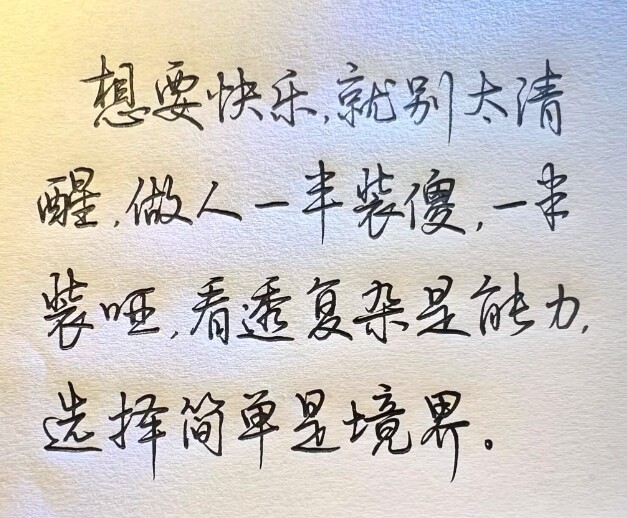 想要快乐,就别太清
醒,做人一半装傻,一半
装哑,看透复杂是能力,
选择简单是境界。